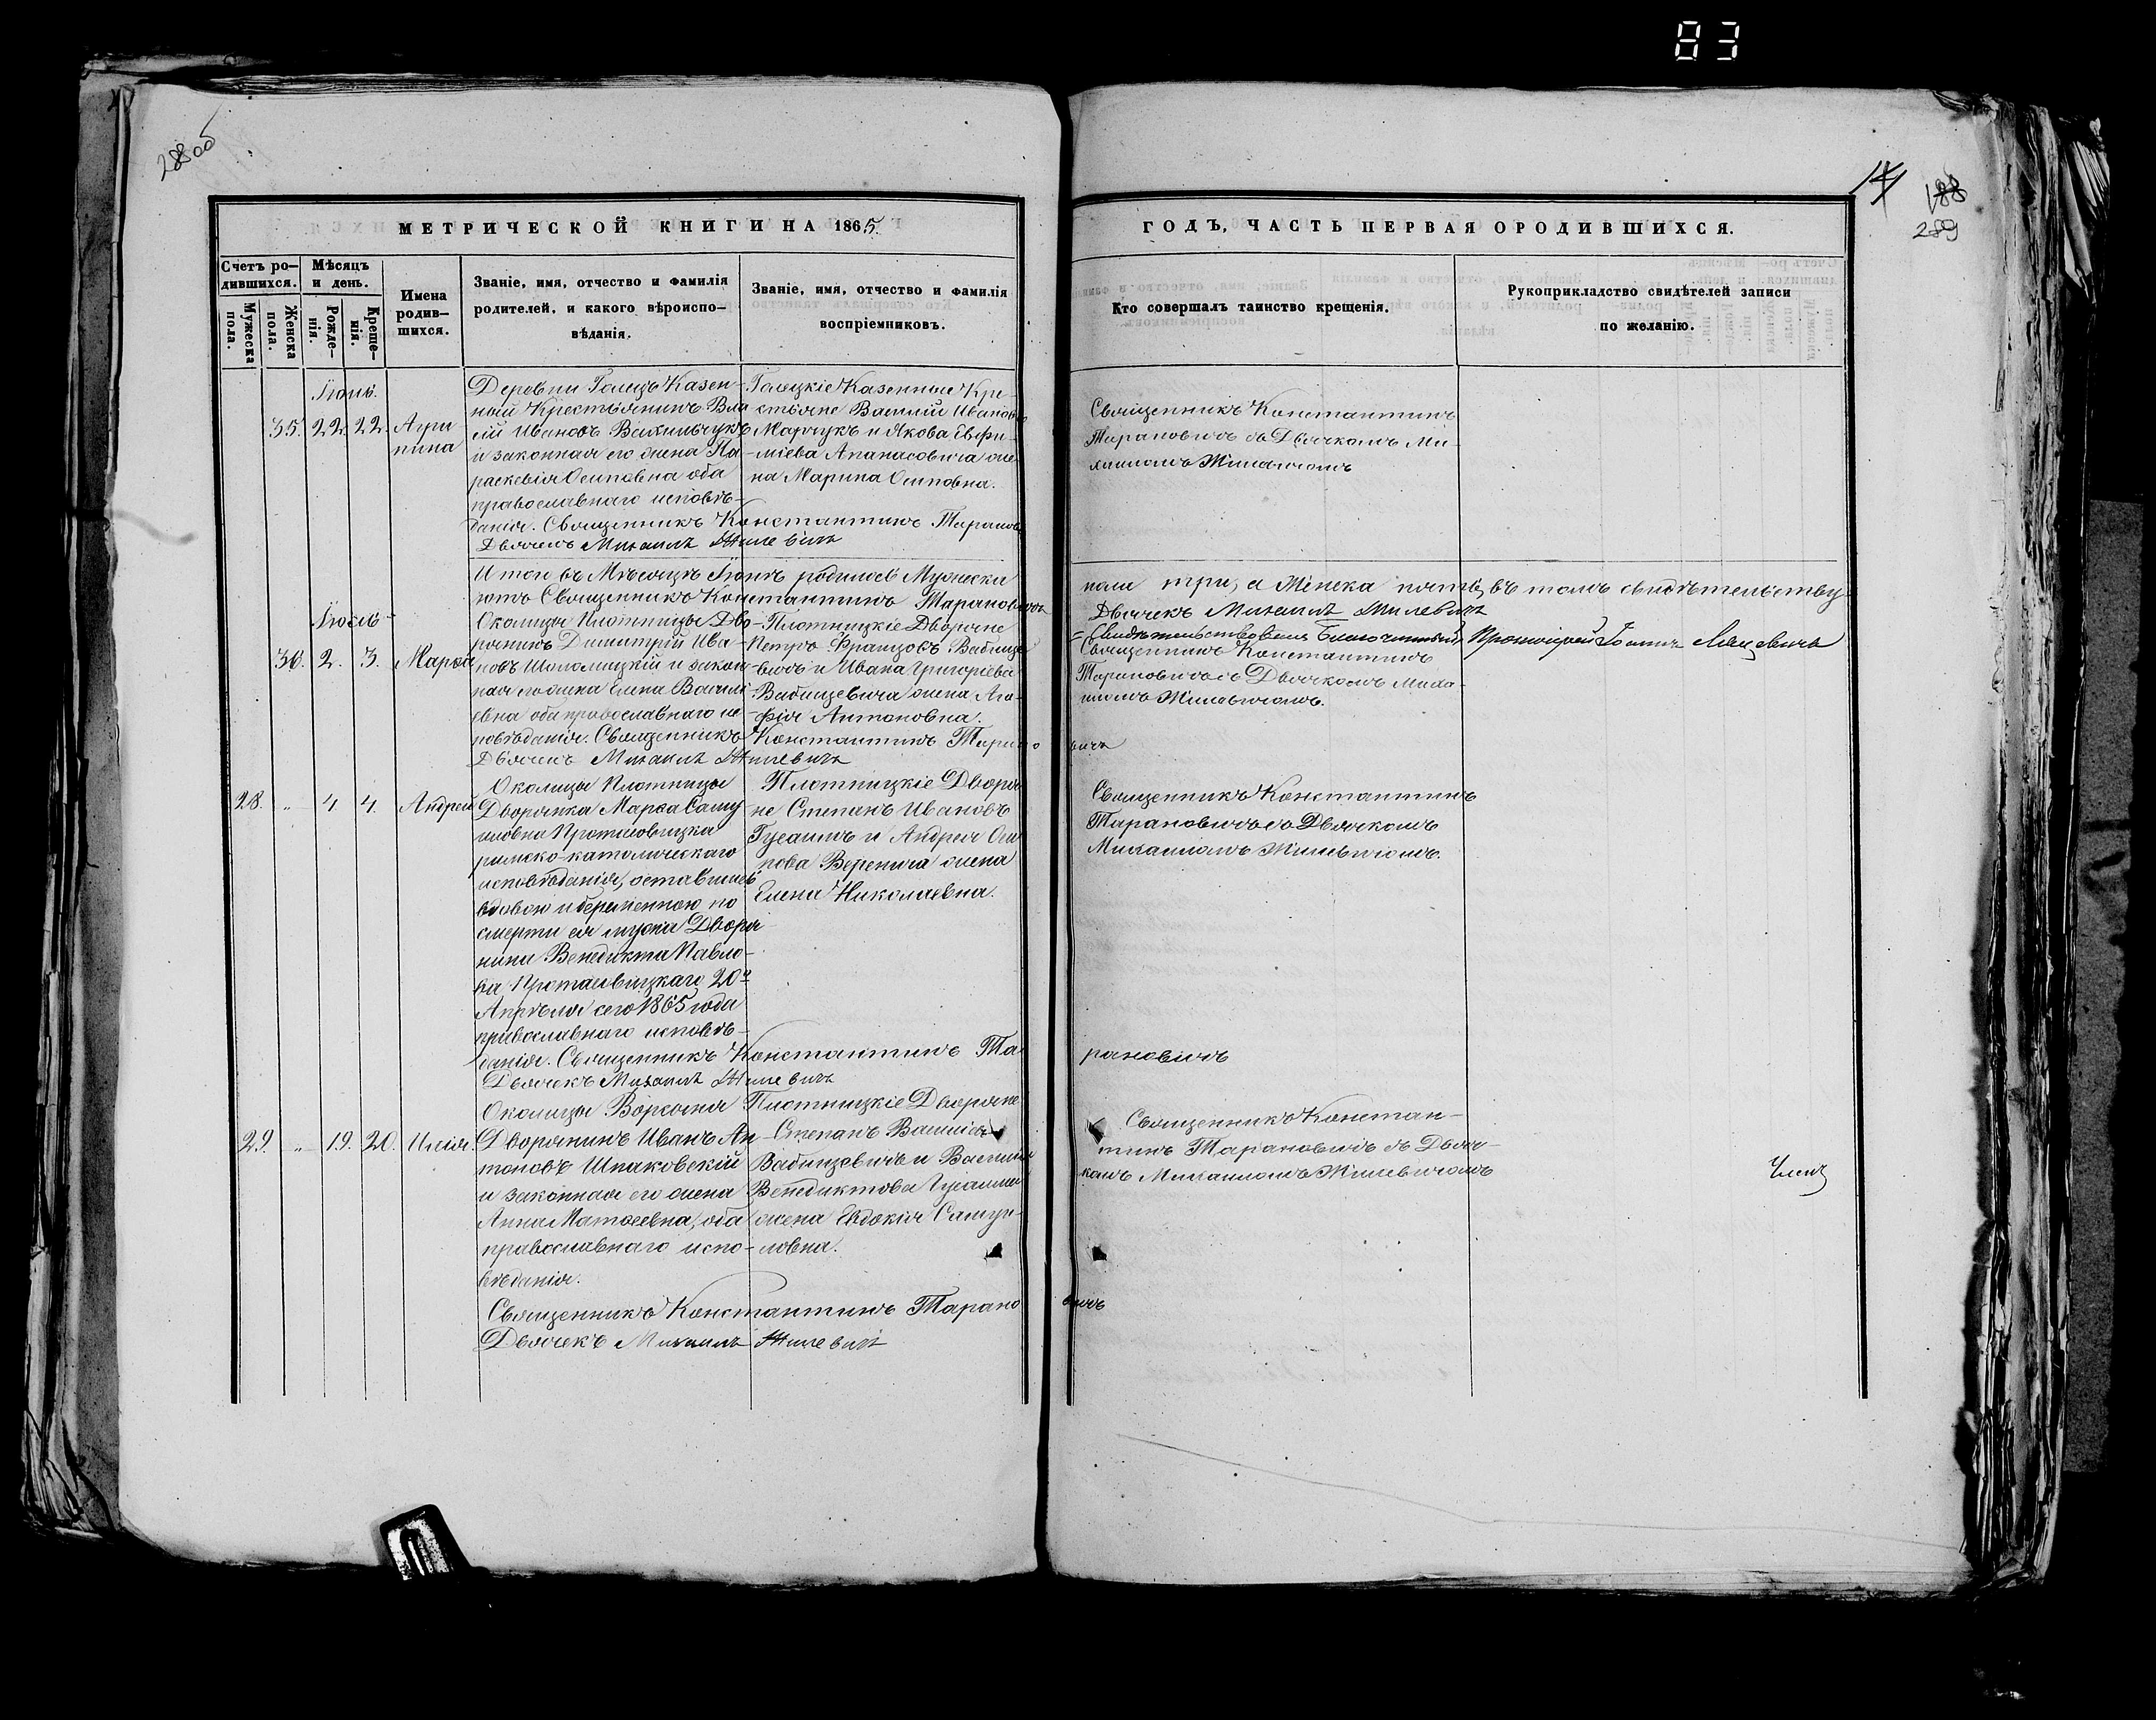 83
288 об
14
188
289
МЕТРИЧЕСКОЙ КНИГИ НА 1865.
ГОДЪ, ЧАСТЬ ПЕРВАЯ О РОДИВШИХСЯ.
Счетъ ро-
дившихся.
Мужеска
пола.
Женска
пола.
Мѣсяцъ
и день.
Рожде-
нія.
Креще-
нія.
Имена
родив-
шихся.
Званіе, имя, отчество и фамилія
родителей, и какого вѣроиспо-
вѣданія.
Званіе, имя, отчество и фамилія
воспріемниковъ.
Кто совершалъ таинство крещенія.
Рукоприкладство свидѣтелей записи
по желанію.
Іюнь.
35. 22. 22. Агри
пина
Деревни Голецъ Казен-
ный Крестьянинъ Васи
лій Ивановъ
и законная его жена Па-
раскевія Осиповна оба
православнаго исповѣ-
данія. Священникъ Константинъ Таранов
Дьячекъ Михаилъ Жилевичъ
Голецкіе Казенные Кре-
стьяне Василій Ивановъ
Марчукъ и Якова Евфи-
міева Апанасовича же-
на Марина Осиповна.
Священникъ Константинъ
Тарановичъ съ Дьячкомъ Ми-
хаиломъ Жилевичомъ
Итого въ Мѣсяцѣ Іюнѣ родилось Мужеска
пола три, а Женска пять, въ томъ свидѣтельству
ютъ Священникъ Константинъ Тарановичъ
Дьячекъ Михаилъ Жилевичъ
Свидѣтельствовалъ Благочинный Протоіерей Іоаннъ
Іюль
36. 2. 3. Марѳа
Околицы Плотницы Дво-
рянинъ Димитрій Ива-
новъ Шоломицкій и закон
ная его жена Елена Василі
евна оба православнаго ис
повѣданія. Священникъ Константинъ Тарано
вичъ
Дьячекъ Михаилъ Жилевичъ
Плотницкіе Дворяне
Петръ Францовъ Вабище
вичъ и Ивана Григоріева
Вабищевича жена Ага-
фія Антоновна.
Священникъ Константинъ
Тарановичъ съ Дьячкомъ Миха-
иломъ Жилевичомъ.
28. " 4 4. Андрей
Околицы Плотницы
Дворянка Марѳа Саму
иловна Протасовицка
римско-католическаго
исповѣданія, оставшись
вдовою и беременною по
смерти ея мужа Дворя
нина Венедикта Павло-
ва Протасовицкаго 20го
Апрѣля сего 1865 года
православнаго исповѣ-
данія. Священникъ Константинъ Та
рановичъ
Дьячекъ Михаилъ Жилевичъ
Плотницкіе Дворя
не Степанъ Ивановъ
Гусаимъ и Андрея Оси
пова Веренича жена
Елена Николаевна.
Священникъ Константинъ
Тарановичъ съ Дьячкомъ
Михаиломъ Жилевичомъ.
29. " 19. 20. Илія.
Околицы Ворсыня
Дворянинъ Иванъ Ан-
тоновъ Шпаковскій
и законная его жена
Анна Матѳеевна, оба
православнаго испо-
вѣданія.
Священникъ Константинъ Тарано
вичъ
Дьячекъ Михаилъ Жилевичъ
Плотницкіе Дворяне
Степанъ Васильевъ
Вабищевичъ и Василія
Венедиктова Гусаима
жена Евдокія Самуи-
ловна.
Священникъ Констан-
тинъ Тарановичъ съ Дьяч-
комъ Михаиломъ Жилевичомъ
Членъ